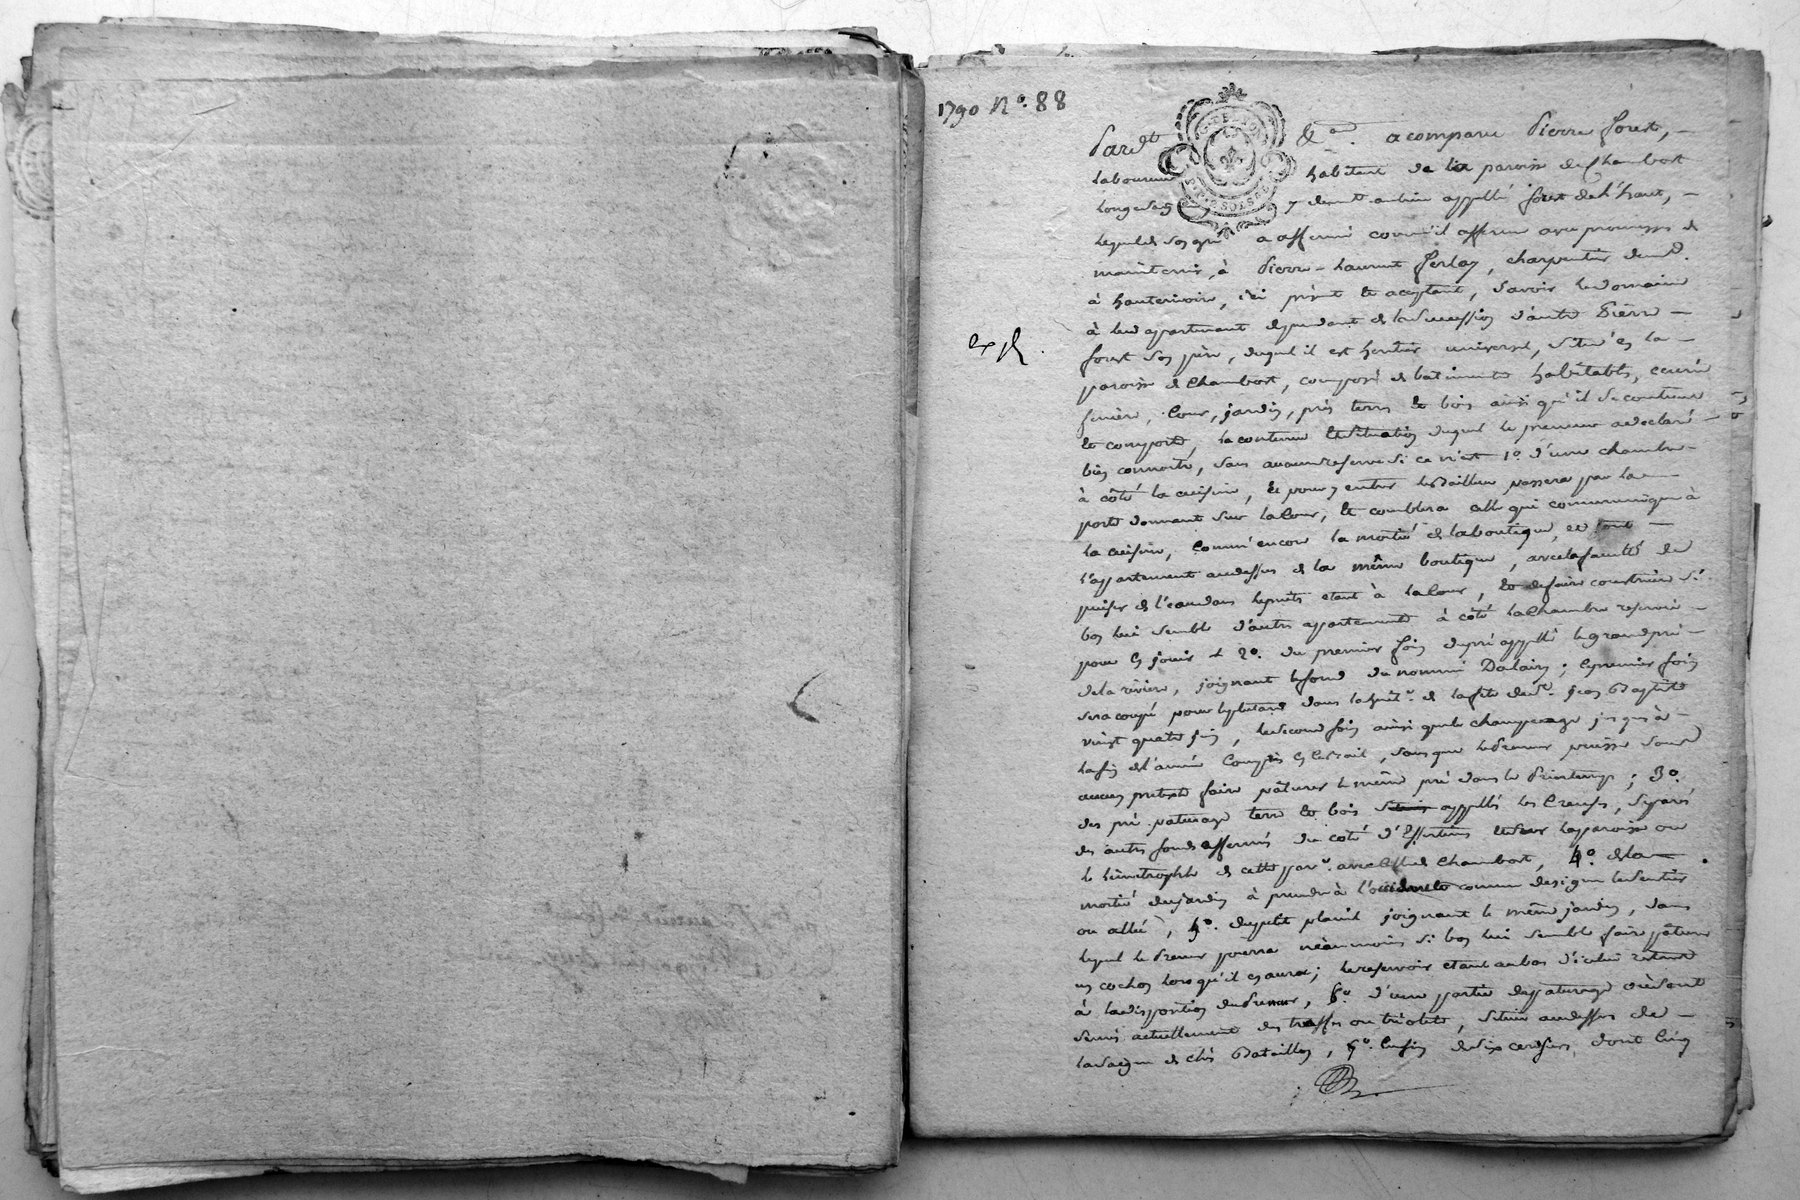 1790 N.º 88
Pardt &a. a comparu Pierre forest, -
laboureur habitant de la paroisse de Chambost
Longes y demt au lieu appellé forest de h'haut, -
lequel de son gré a affermé comme il afferme avec promesse de
maintenir, à Pierre-Laurent Ferlay, charpentier demt.
à hauterivoire, ici présent et acceptant, savoir le domaine
à lui appartenant dependant de la succession d'autre Pierre -
forest son père, duquel il est heritier universel, situé en la -
paroisse de Chambost, composé de batiments habitables, écurie
feniere, Cour, jardin, prés terres et bois ainsi qu'il se contient
et comporte, la contenue et situation duquel le preneur a declaré -
bien connoitre, sans aucune reserve si ce n'est 1º. d'une chambre -
à côté la cuisine, et pour y entrer le Bailleur passera par la -
porte donnant sur la Cour, et comblera celle qui communique à
la cuisine, Comm'encore la moitié de la boutique, et tout -
l'appartement audessus de la même boutique, avec la faculté de
puiser de l'eau dans le puits etant à la Cour, et de faire construire si
bon lui semble d'autres appartements à côté la Chambre reservée -
pour en jouir 2º. du premier foin du pré appellé le grand pré -
de la riviere, joignant le fond du nommé Dalairy; le premier foin
sera coupé pour le plutard dans la huite. de la fête de St. Jean Baptiste
vingt quatre juin, le second foin ainsi que le champerage jusques à -
la fin de l'année Compris en le bail, sans que le Preneur puisse sous
aucun pretexte faire pâturer le même pré dans le Printemps; 3º.
des pré paturage terre et bois appellés les Creuses, separés
des autres fonds affermés du coté d'Essertines et sur la paroisse ou
le limitrophe de cette parse. avec celle de Chambost, 4º. de la
moitié du jardin à prendre à l'occident comme designe le sentier
ou allée, 5º. du petit plani joignant le même jardin, dans
lequel le Preneur pourra néanmoins si bon lui semble faire pâturer
un cochon lorsqu'il en aura; le reservoir etant au bas d'icelui restera
à la disposition du Preneur, 6º. d'une partie de paturage
semés actuellement des treffles ou triolets, située audessus de -
la vacque de chés Bataillon, 7º. Enfin de dix cerisiers, dont cinq
exp.